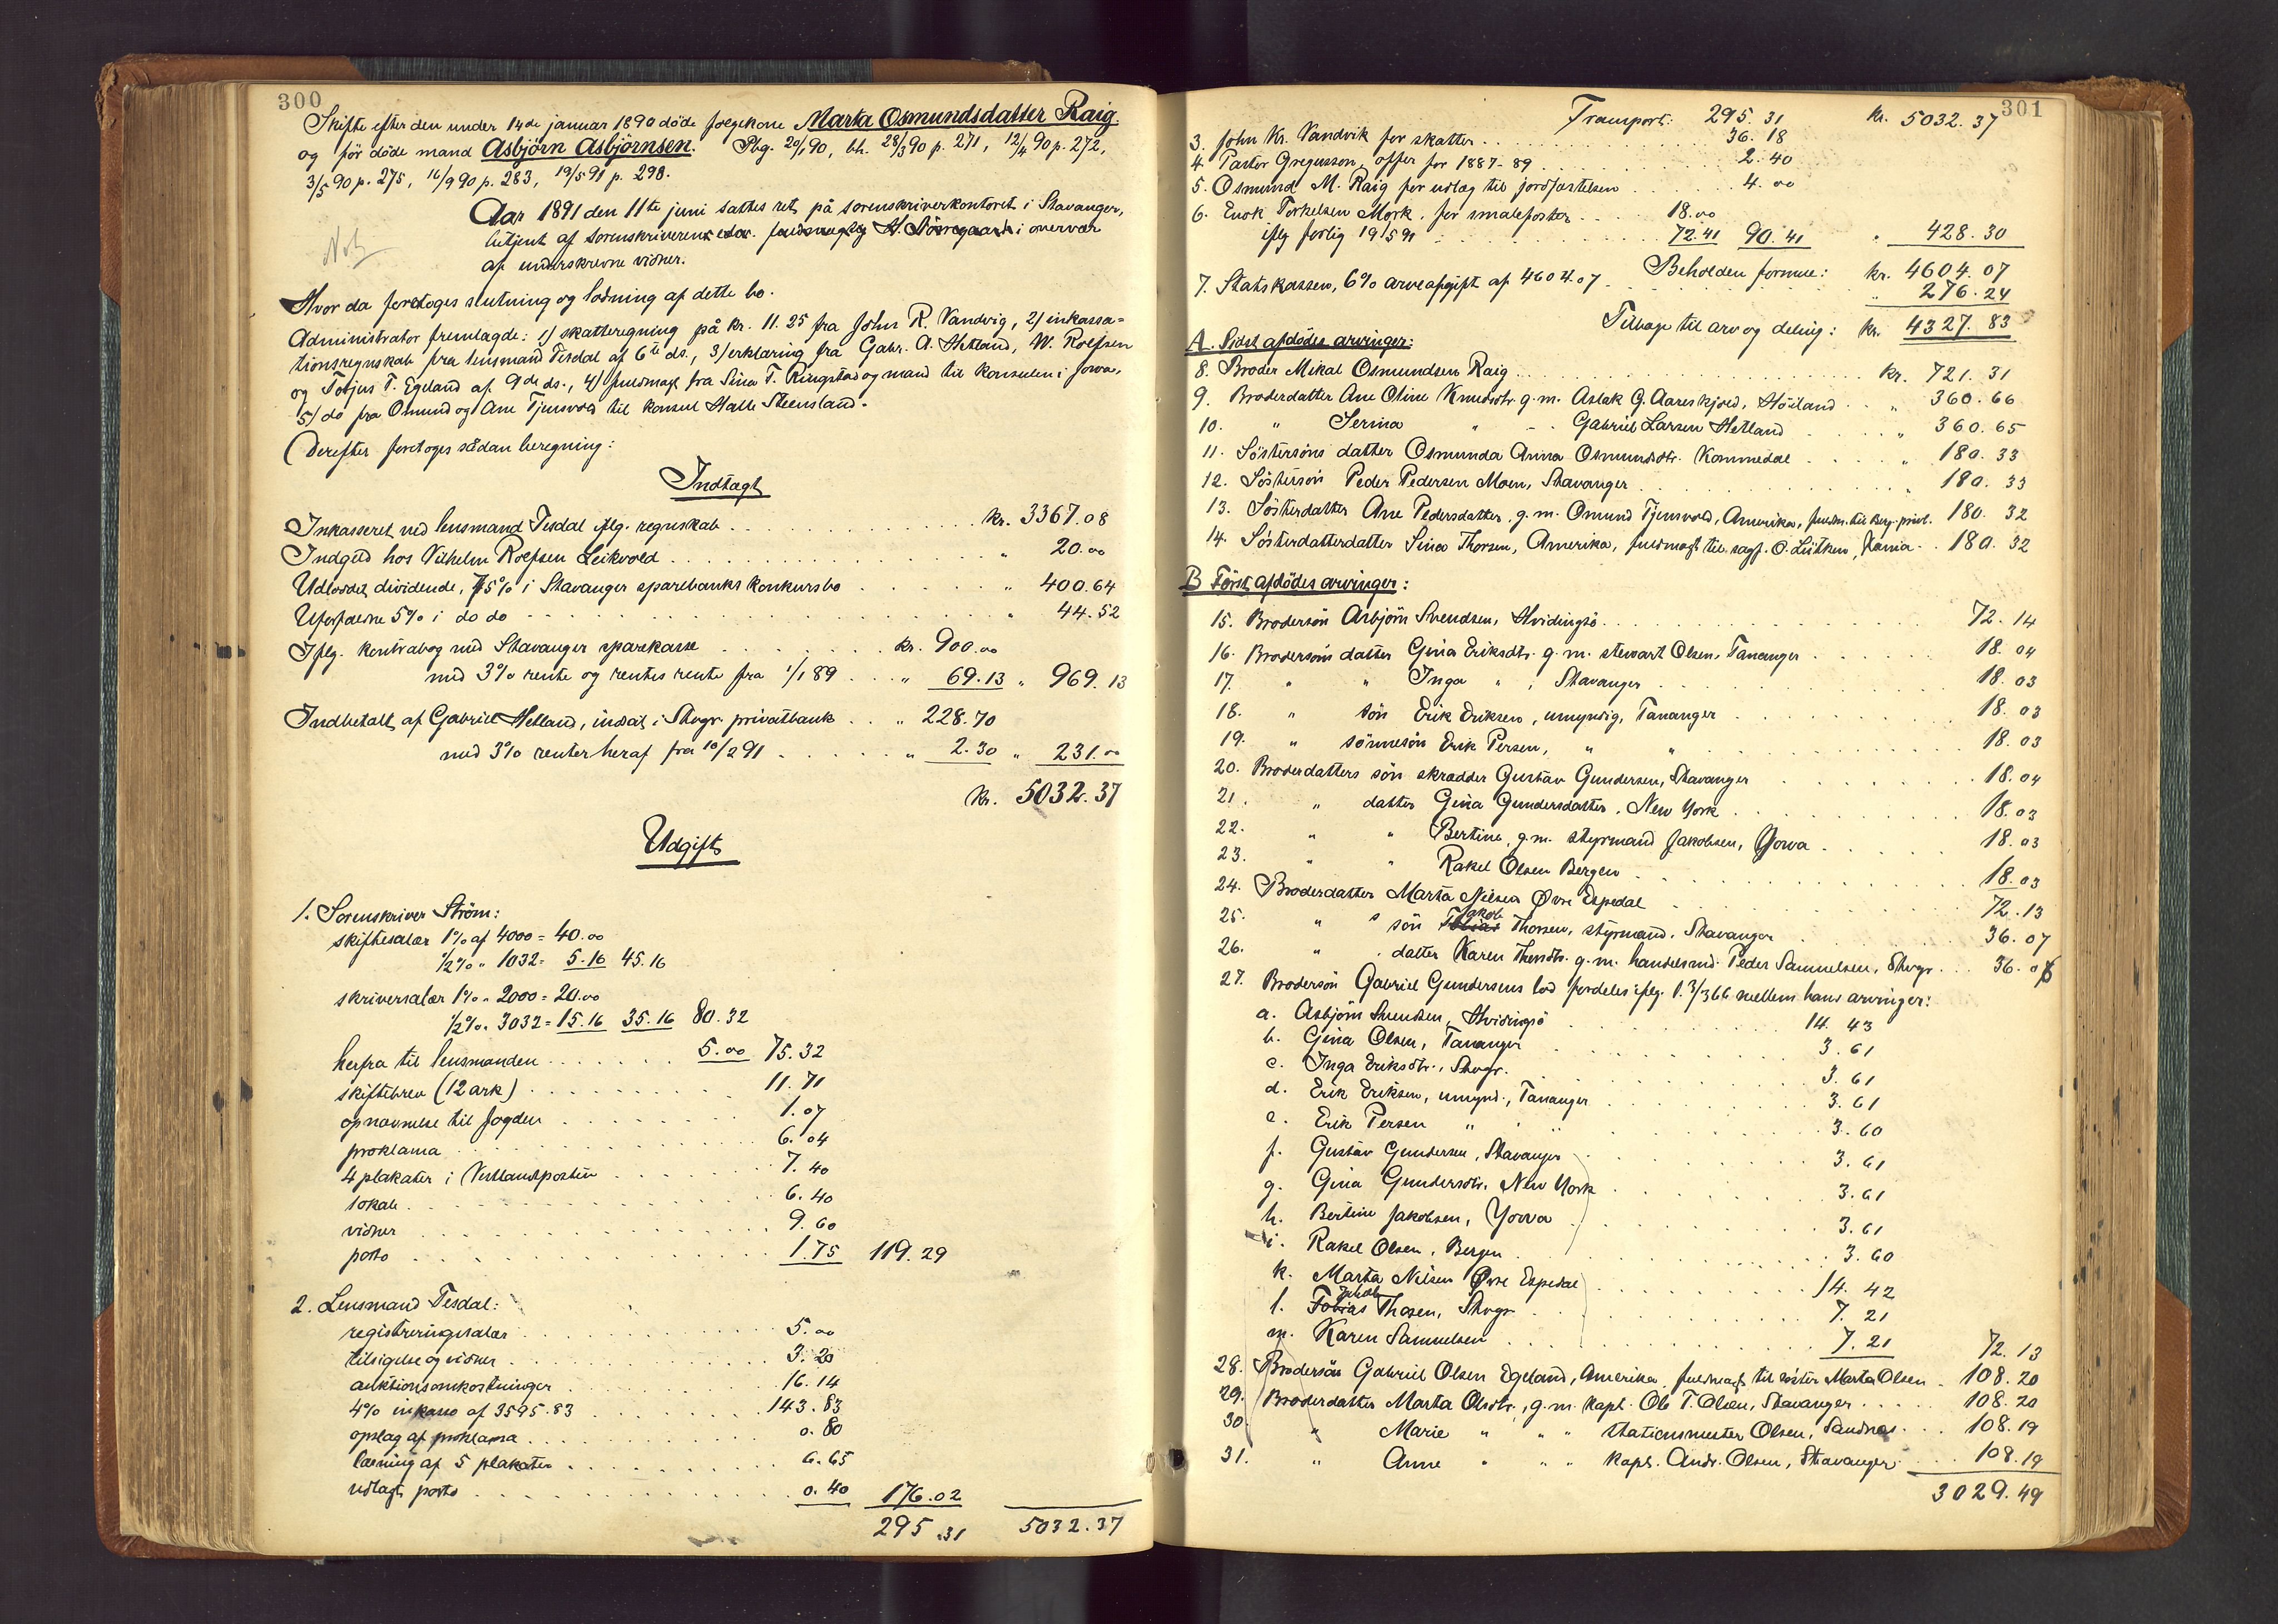 300
Skifte efter den under 14de januar 1890 døde føgekone Marta Osmundsdatter Raig.
og før døde mand Asbjörn Asbjörnsen. Pbg. 20/1 90, bh. 28/3 90 p. 271, 12/4 90 p. 272,
3/5 90 p. 275, 16/9 90 p. 283, 19/5 91 p. 298.
Aar 1891 den 11te juni sattes ret på sorenskriverkontoret i Stavanger,
betjent af sorenskriveren i overvær
af underskrevne vidner.
Hvor da foretoges slutning og lodning af dette bo.
Administrator fremlagde: 1) skatteregning på kr. 11.25 fra John R. Vandvig, 2) inkassa=
tionsregnskab fra lensmand Tisdal af 6te ds., 3) erklæring fra Gabr. A. Hetland, W. Roefsen
og Tobjus T. Egeland af 9de ds., 4) fuldmagt fra Sina T. Ringstad og mand til konsulen i Jowa,
5) do fra Omund og Ane Tjensvold til konsul Halle Steensland.
Derefter foretoges sådan beregning:
Indtægt
Inkasseret ved lensmand Tisdal iflg. regnskab kr. 3367.08
Indgåd hos Vilhelm Roefsen Leikvold " 20.00
Udloddet dividende, 45% i Stavanger sparebanks konkursbo " 400.64
Uforfaldne 5% i do do " 44.52
Iflg. kontrabog med Stavanger sparekasse kr. 900.00
med 3% rente og rentes rente fra 1/1 89 " 69.13 " 969.13
Indbetalt af Gabriel Hetland, indsat i Stvgr. privatbank " 228.70
med 3% renter heraf fra 10/2 91 " 2.30 " 231.00
Kr. 5032.37
Udgift
1. Sorenskriver Ström:
skiftesalær 1% af 4000 = 40.00
1/2% " 1032 = 5.16 45.16
skriversalær 1% " 2000 = 20.00
1/2% " 3032 = 15.16 35.16 80.32
herfra til lensmanden 5.00 75.32
skiftebrev (12 ark) 11.71
opnævnelse til fogden 1.07
proklama 6.04
4 plakater i Vestlandsposten 7.40
lokale 6.40
vidner 9.60
porto 1.75 119.29
2. Lensmand Tesdal:
registreringssalær 5.00
tilsigelse og vidner 3.20
auktionsomkostninger 16.14
4% inkasso af 3595.83 143.83
opslag af proklama 0.80
læsning af 5 plakater 6.65
udlagt porto 0.40 176.02
295.31 5032.37
301
Transport: 295.31 Kr. 5032.37
3. John Kr. Vandvik for skatter 36.18
4. Pastor Gregusson, offer for 1887-89 2.40
5. Osmund M. Raig for udlæg til jordfæstelsen 4.00
6. Enok Torkelsen Mork, for småleposter 18.00
iflg forlig 19/5 91 72.41 90.41 " 428.30
Beholden formue: kr. 4604.07
7. Statskassen, 6% arveafgift af 4604.07 " 276.24
Tilbage til arv og deling: kr. 4327.83
A. Sidst afdødes arvinger:
8. Broder Mikal Osmundsen Raig kr. 721.31
9. Broderdatter Ane Oline Knudsdtr. g.m. Aslak G. Aareskjold, Höiland " 360.66
10. " Serina " - - Gabriel Larsen Hetland " 360.65
11. Söstersöns datter Osmunda Anna Osmundsdtr. Kommedal " 180.33
12. Söstersön Peder Pedersen Moen, Stavanger " 180.33
13. Sösterdatter Ane Pedersdatter, g.m. Omund Tjensvold, Amerika, fuldm. til Berg. privb. 180.32
14. Sösterdatterdatter Sina Thorsen, Amerika, fuldmagt til sagf. O. Lütken 180.32
B Först afdödes arvinger:
15. Brodersön Asbjörn Svendsen, Hvidingsö 72.14
16. Brodersöns datter Gina Eriksdtr. g.m. stewart Olsen, Tananger 18.04
17. " " Inga " , Stavanger 18.03
18. " sön Erik Eriksen, umyndig, Tananger 18.03
19. " sönnesön Erik Persen, " " 18.03
20. Broderdatters sön skrædder Gustav Gundersen, Stavanger 18.04
21. " datter Gina Gundersdatter, New York 18.03
22. " " Bertine, g.m. styrmand Jakobsen, Yowa 18.03
23. " " Rakel Olsen Bergen 18.03
24. Broderdatter Marta Nielsen Øvre Espedal 72.13
25. " s sön Jakob Thorsen, styrmand, Stavanger 36.07
26. " datter Karen Thorsdtr. g.m. handelsmd. Peder Samuelsen, Stvgr. 36.06
27. Brodersön Gabriel Gundersens lod fordeles iflg. l. 3/3 66 mellem hans arvinger:
a. Asbjörn Svendsen, Hvidingsö 14.43
b. Gina Olsen, Tananger 3.61
c. Inga Eriksdtr., Stvgr. 3.61
d. Erik Eriksen, umynd., Tananger 3.61
e. Erik Persen " " 3.60
f. Gustav Gundersen, Stavanger 3.61
g. Gina Gundersdtr. New York 3.61
h. Bertine Jakobsen, Yowa 3.61
i. Rakel Olsen, Bergen 3.60
k. Marta Nilsen Øvre Espedal 14.42
l. Jakob Thosen, Stvgr 7.21
m. Karen Samuelsen 7.21 72.13
28. Brodersön Gabriel Olsen Egeland, Amerika, fuldmagt til söster Marta Olsen 108.20
29. Broderdatter Marta Olsdtr., g.m. kapt. Ole T. Olsen, Stavanger 108.20
30. " Marie " " " stationsmester Olsen, Sandnæs 108.19
31. " Anne " " " kapt. Andr. Olsen, Stavanger 108.19
3029.49